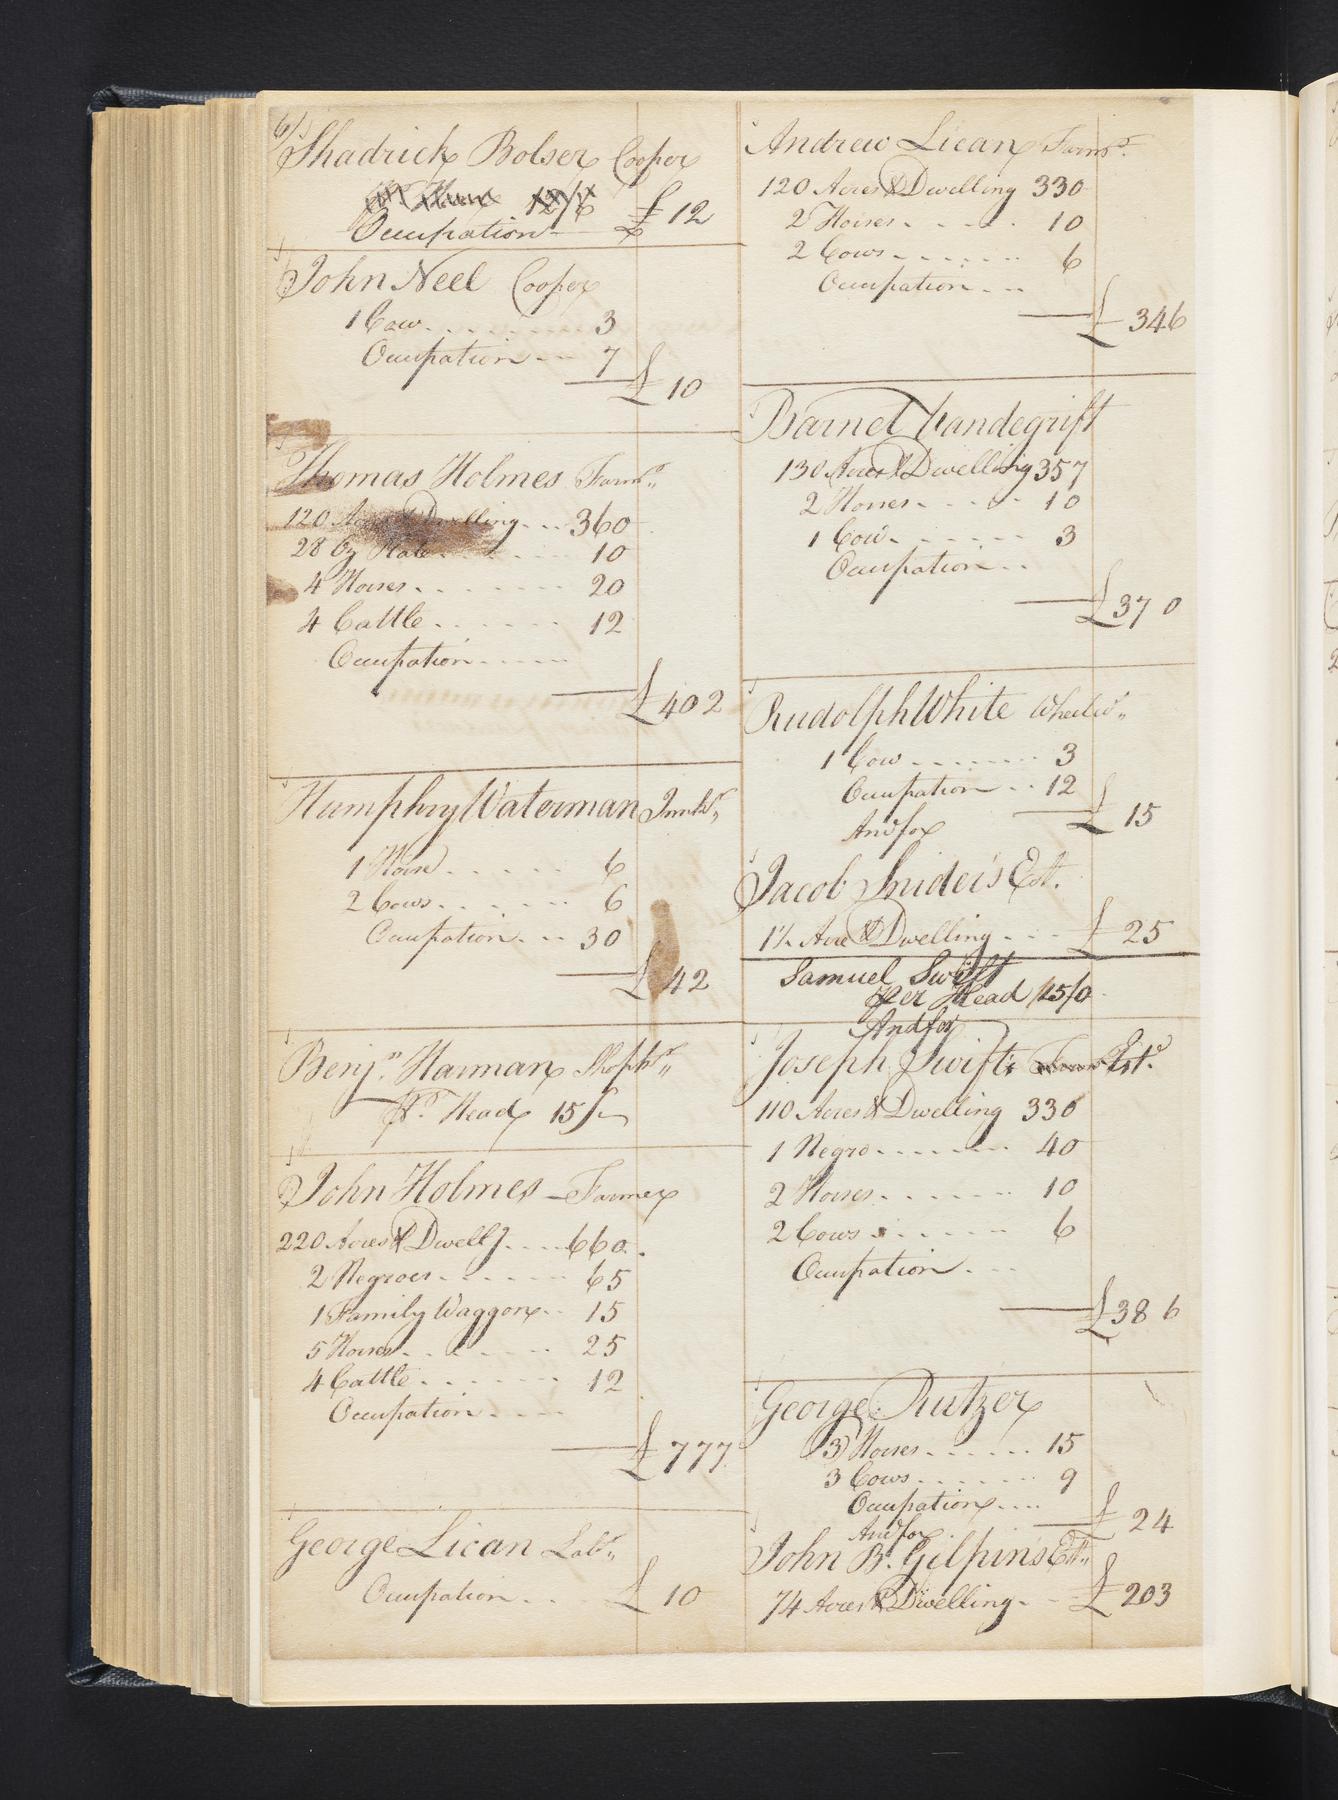 61)
Shadrick Bolser Cooper
Pr. Head 12/6
Occupation £ 12
John Neel Cooper
1 Cow 3
Occupation 7
£ 10
Thomas Holmes Farmr.
120 Acres & Dwelling 360
28 Oz Plate 10
4 Horses 20
4 Cattle 12
Occupation
£ 402
Humphry Waterman Innkr.
1 Horse 6
2 Cows 6
Occupation 30
£ 42
Benjn. Harman Shopkr.
Pr. Head 15/
John Holmes Farmer
220 Acres & Dwellg 660
2 Negroes 65
1 Family Waggon 15
5 Horses 25
4 Cattle 12
Occupation
£ 777
George Lican Labr.
Occupation £ 10
Andrew Lican Farmr.
120 Acres & Dwelling 330
2 Horses 10
2 Cows 6
Occupation
£ 346
Barnet Vandegrift
130 Acres & Dwelling 357
2 Horses 10
1 Cow 3
Occupation
£ 370
Rudolph White Wheelwr.
1 Cow 3
Occupation 12
£ 15
And for
Jacob Snider's Est.
1½ Acre & Dwelling £ 25
Samuel Swift
Per Head 15/0
And for
Joseph Swift's Farmr Estd.
110 Acres & Dwelling 330
1 Negro 40
2 Horses 10
2 Cows 6
Occupation
£ 386
George Rutzer
3 Horses 15
3 Cows 9
Occupation
£ 24
And for
John B. Gilpin's Et.
74 Acres & Dwelling £ 203